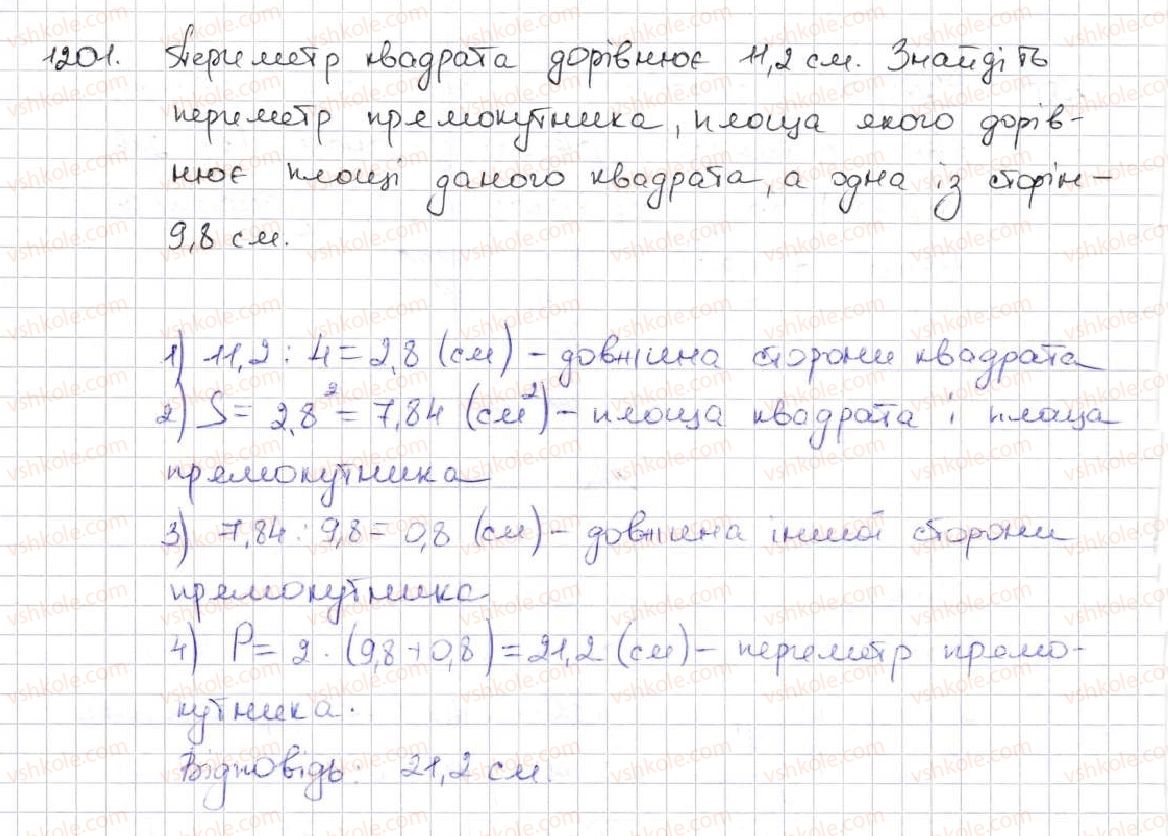 1201. Периметр квадрата дорівнює 11,2 см. Знайдіть
периметр прямокутника, площа якого дорів-
нює площі даного квадрата, а одна із сторін -
9,8 см.
1) 11,2 : 4 = 2,8 (см) - довжина сторони квадрата
2) S = 2,8² = 7,84 (см²) - площа квадрата і площа
прямокутника
3) 7,84 : 9,8 = 0,8 (см) - довжина іншої сторони
прямокутника
4) P = 2 · (9,8 + 0,8) = 21,2 (см) - периметр прямо-
кутника.
Відповідь: 21,2 см.